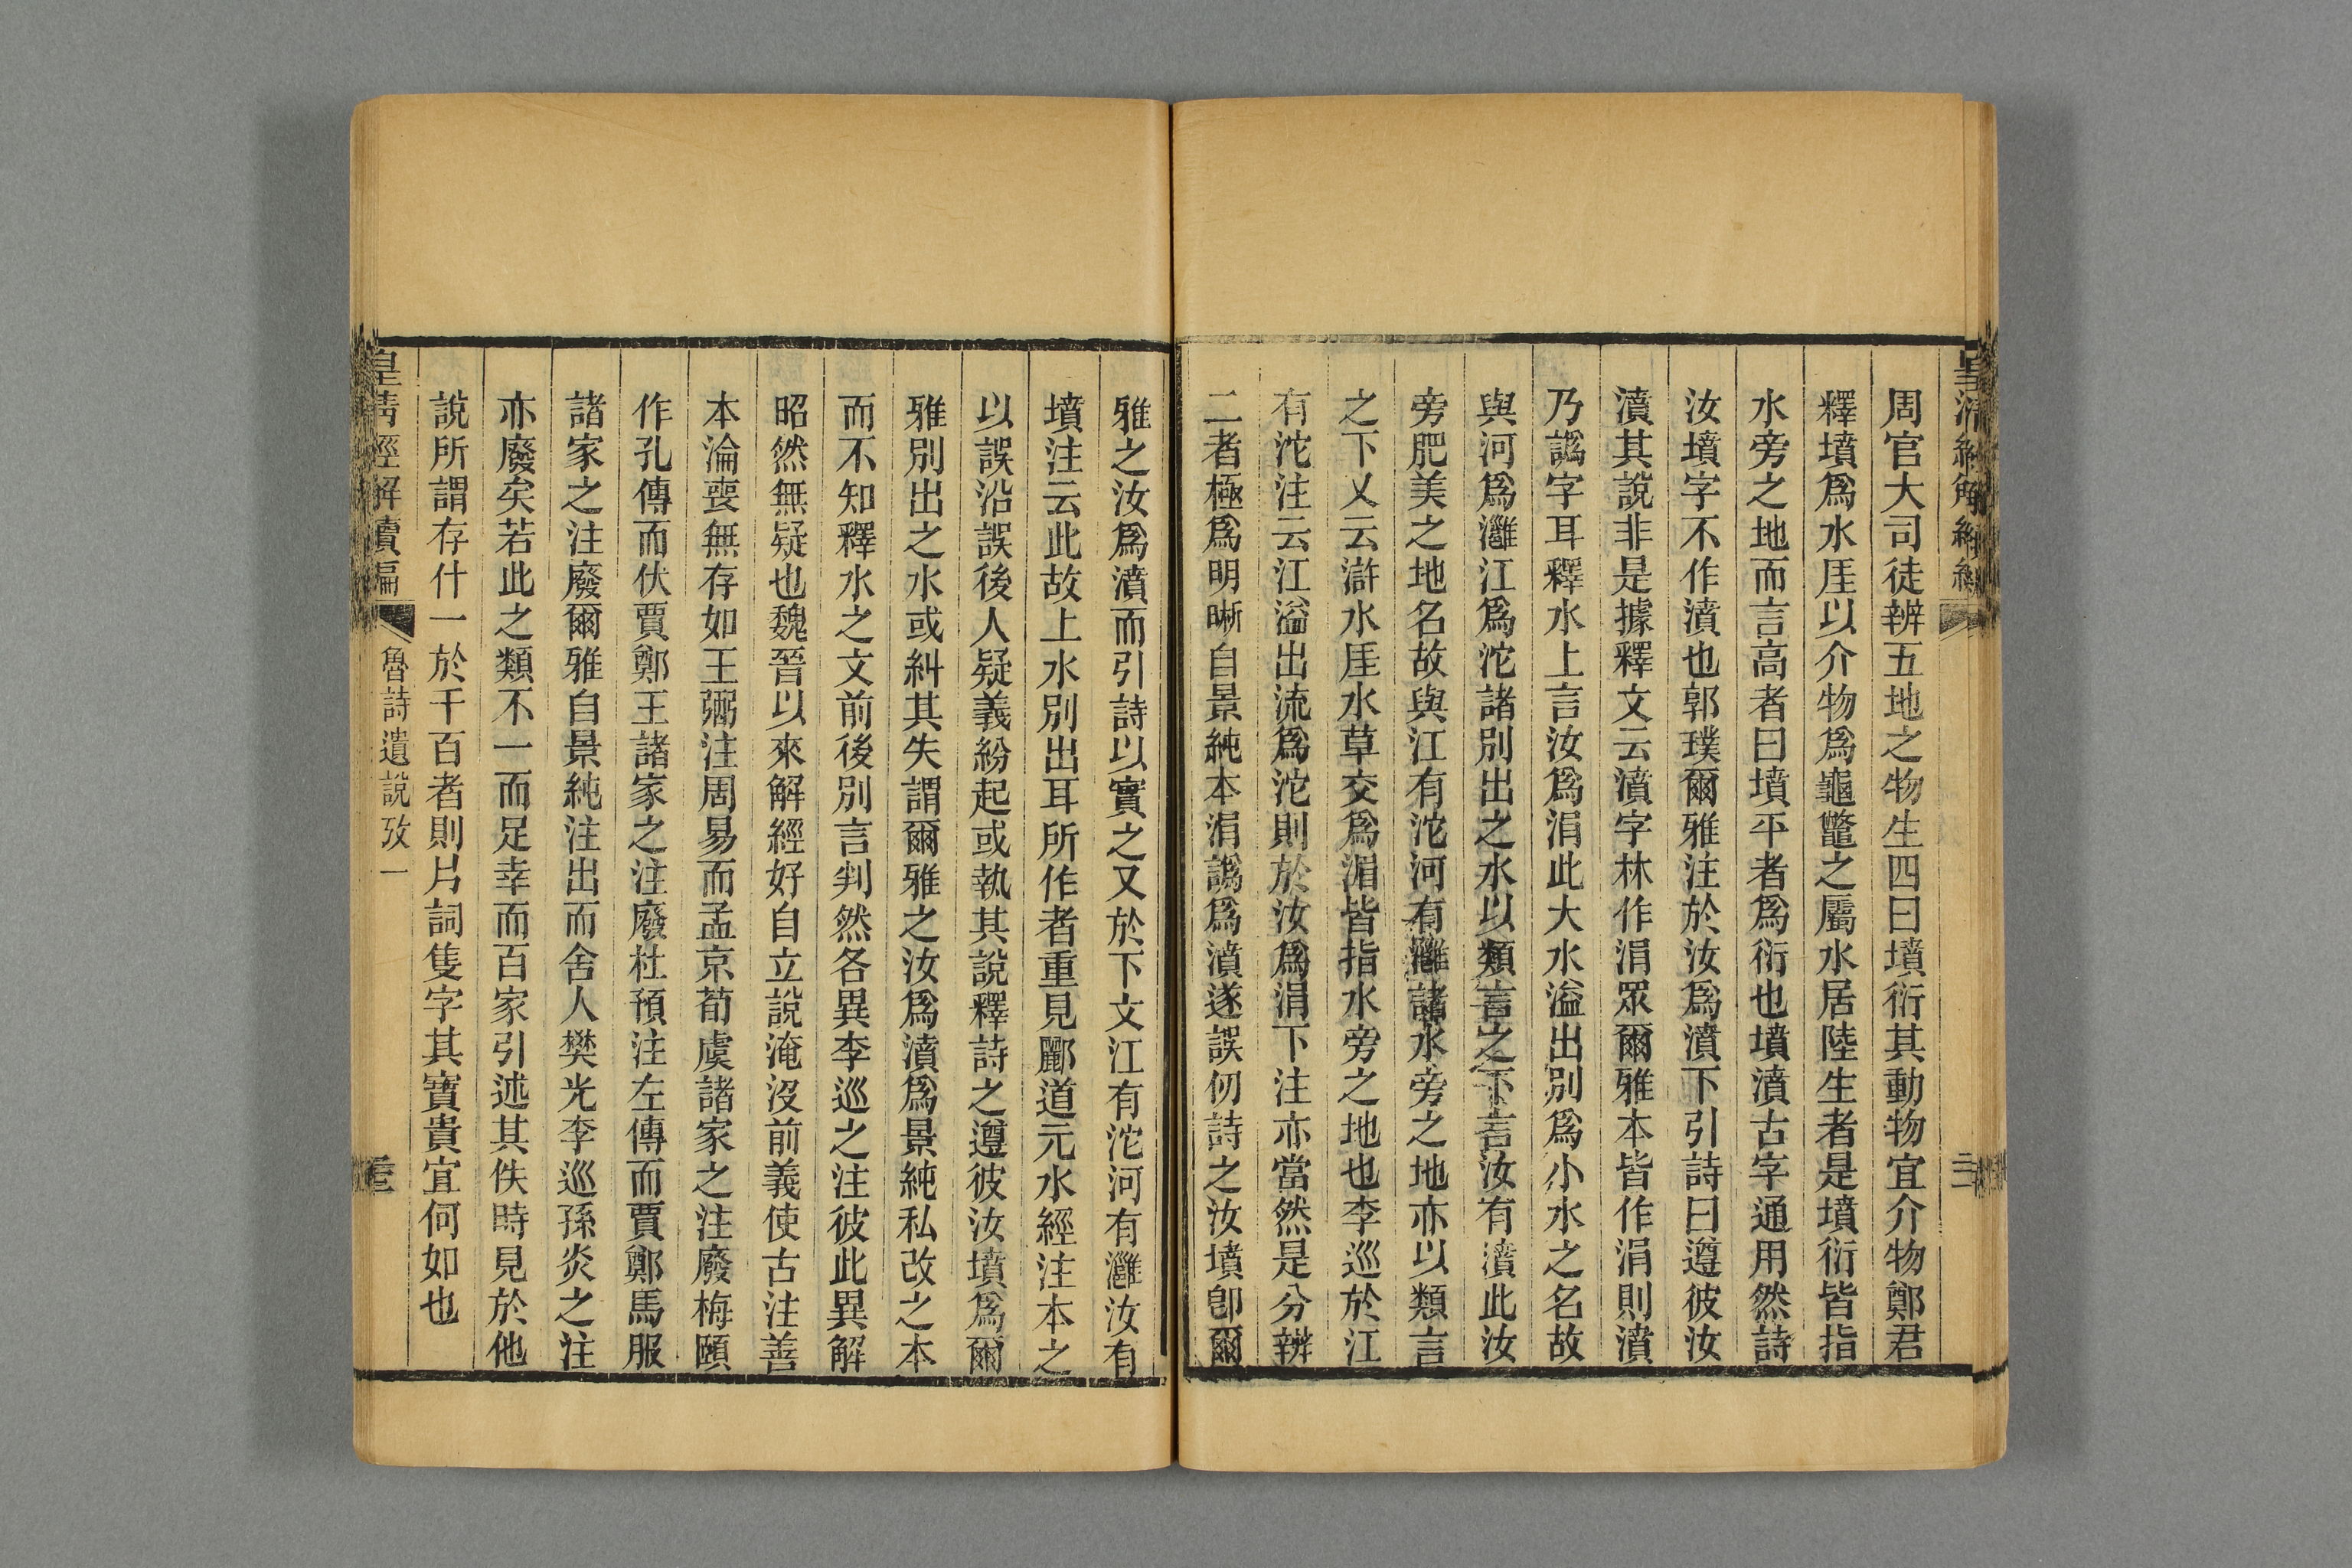 周官大司徒辨五地之物生四曰墳衍其動物宜介物鄭君
釋墳爲水厓以介物爲龜鼈之屬水居陸生者是墳衍皆指
水旁之地而言高者曰墳平者爲衍也墳濆古字通用然詩
汝墳字不作濆也郭璞爾雅注於汝爲濆下引詩曰遵彼汝
濆其說非是據釋文云濆字林作涓眾爾雅本皆作涓則濆
乃譌字耳釋水上言汝爲涓此大水溢出別爲小水之名故
與河爲灉江爲沱諸別出之水以類言之下言汝有濆此汝
旁肥美之地名故與江有沱河有灉諸水旁之地亦以類言
之下又云滸水厓水草交爲湄皆指水旁之地也李巡於江
有沱注云江溢出流爲沱則於汝爲涓下注亦當然是分辨
二者極爲明晰自景純本涓譌爲濆遂誤仞詩之汝墳卽爾
雅之汝爲濆而引詩以實之又於下文江有沱河有灉汝有
墳注云此故上水別出耳所作者重見酈道元水經注本之
以誤沿誤後人疑義紛起或執其說釋詩之遵彼汝墳爲爾
雅別出之水或糾其失謂爾雅之汝爲濆爲景純私改之本
而不知釋水之文前後別言判然各異李巡之注彼此異解
昭然無疑也魏晉以來解經好自立說淹沒前義使古注善
本淪喪無存如王弼注周易而孟京荀虞諸家之注廢梅頤
作孔傳而伏賈鄭王諸家之注廢杜預注左傳而賈鄭馬服
諸家之注廢爾雅自景純注出而舍人樊光李巡孫炎之注
亦廢矣若此之類不一而足幸而百家引述其佚時見於他
說所謂存什一於千百者則片詞隻字其寶貴宜何如也
皇清經解續編
魯詩遺說攷一